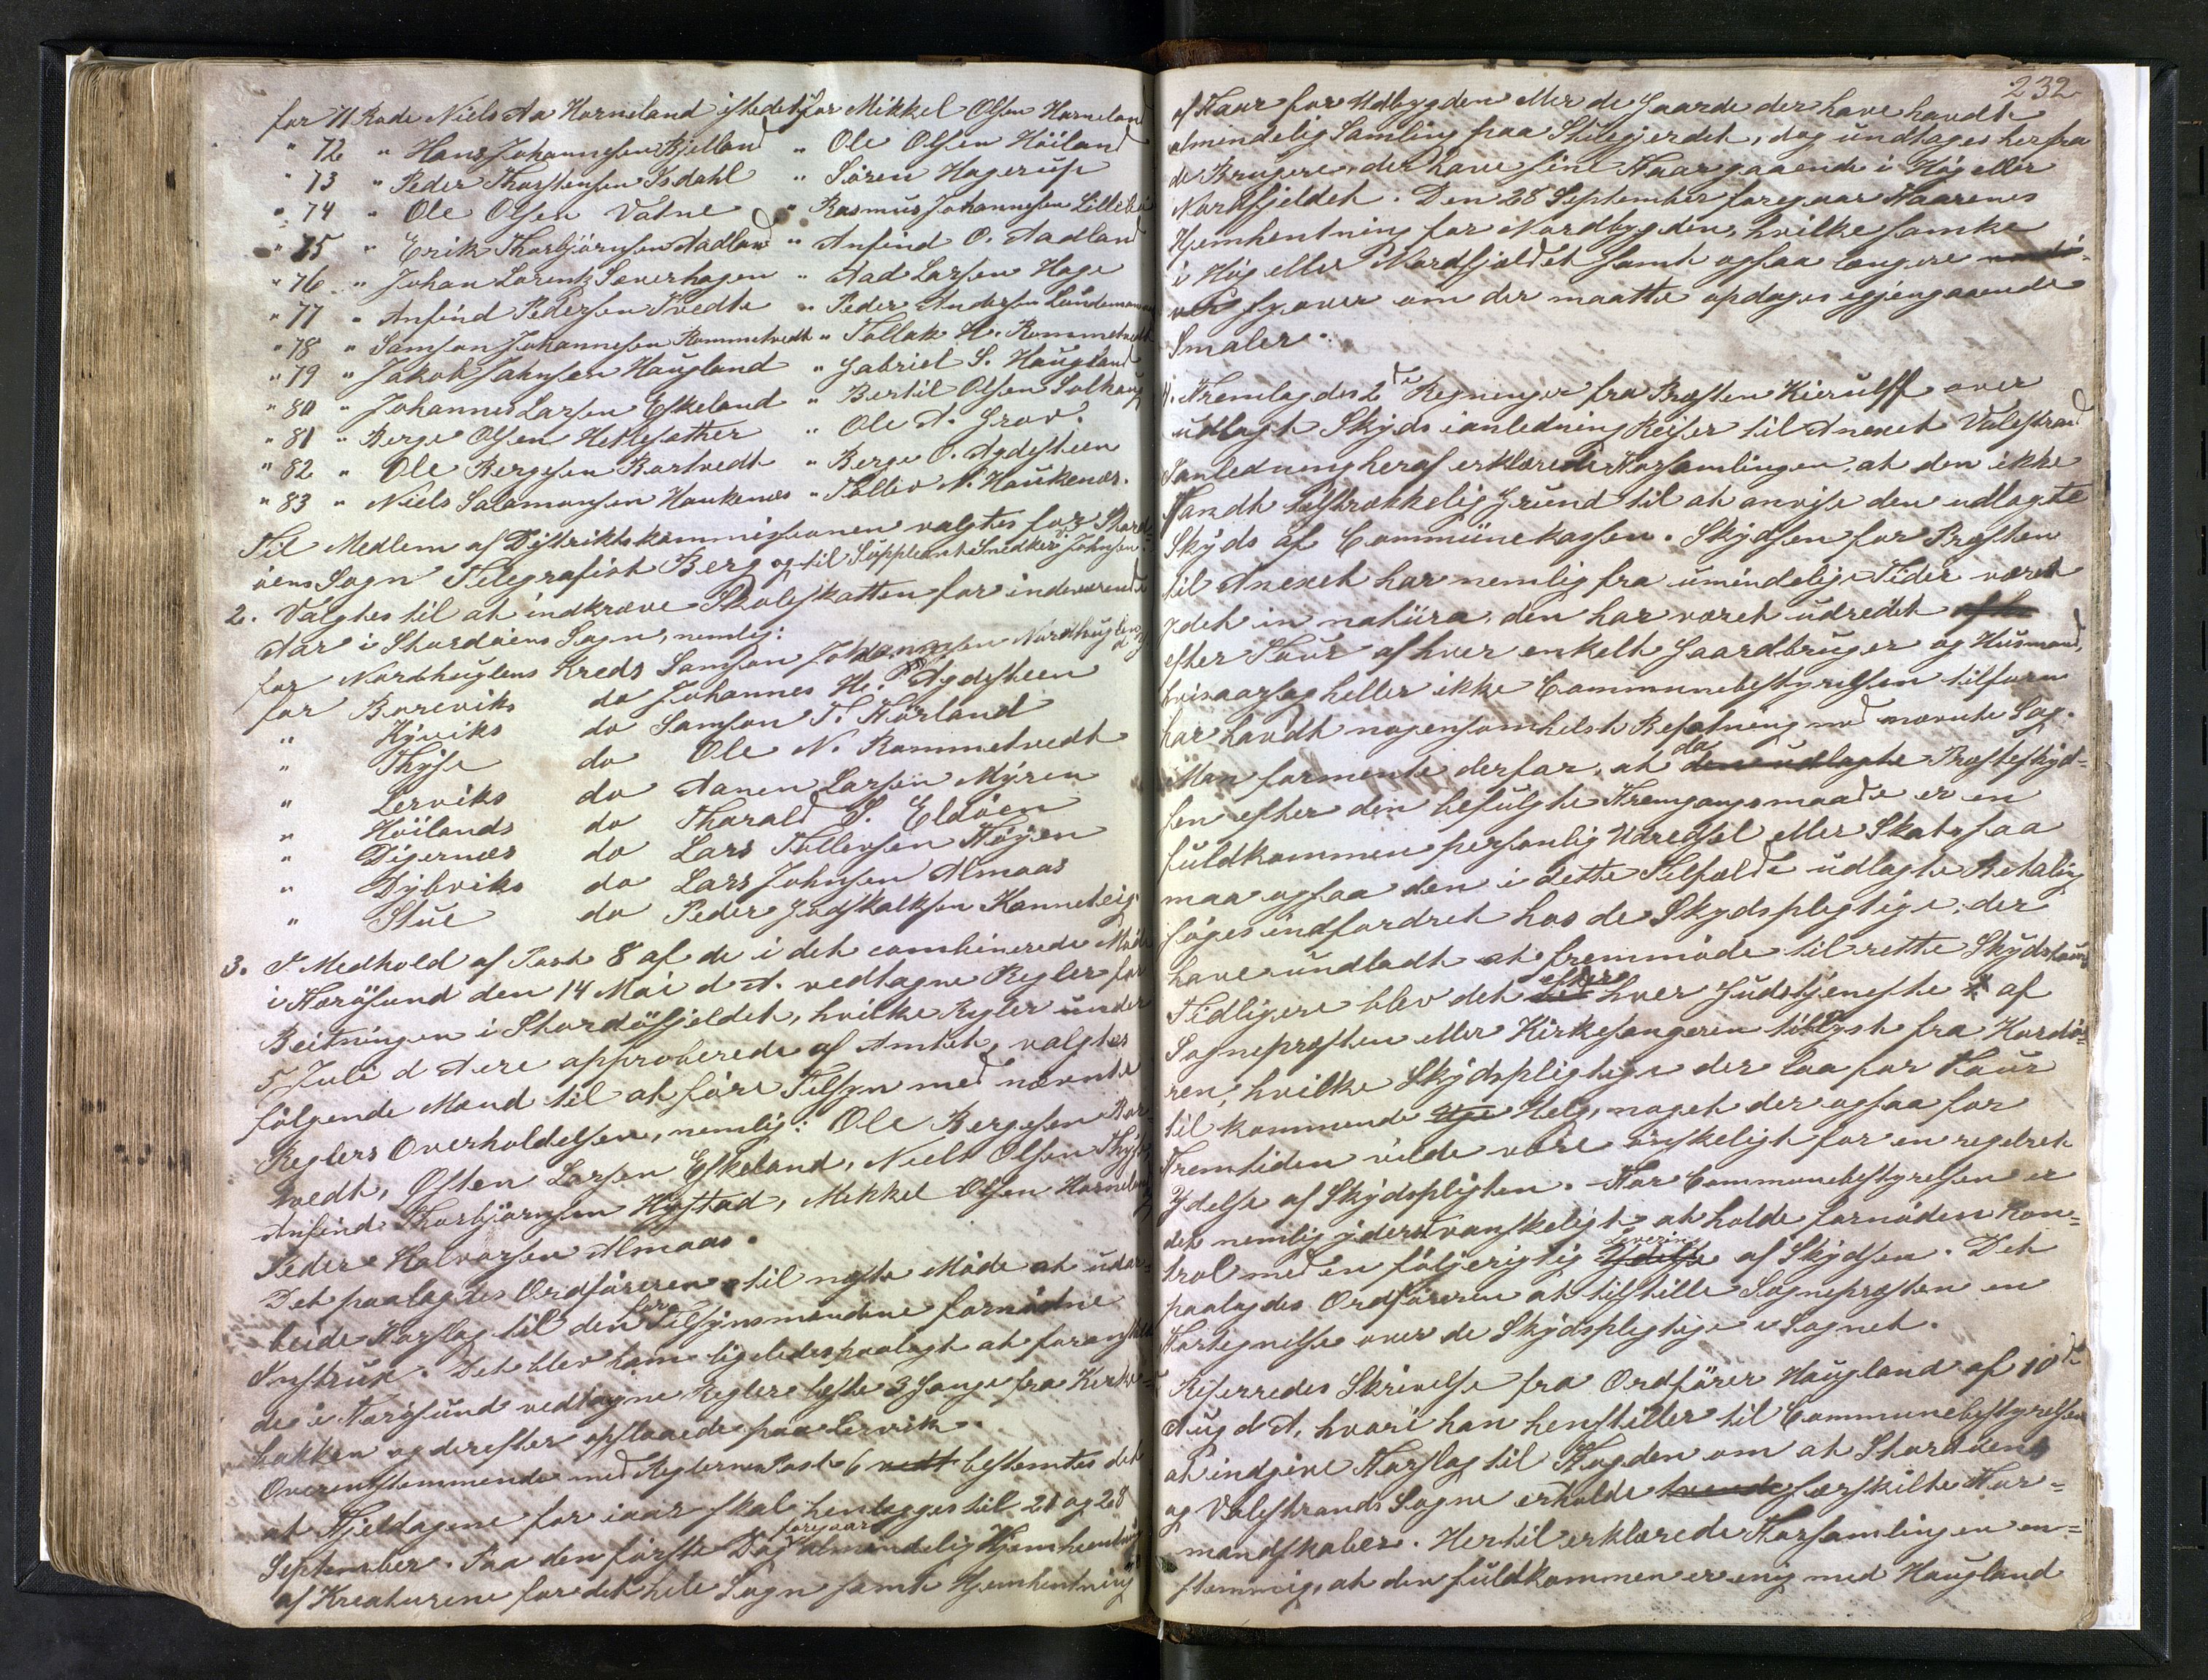 for 71 Rode Niels Aa Horneland istedetfor Mikkel Olsen Horneland
" 72 " Hans Johannesen Bjelland " Ole Olsen Höiland
" 73 " Peder Thorstensen Isdahl " Sören Hagerup
" 74 " Ole Olsen Vatne " Rasmus Johannesen Lillebö
" 75 " Erik Thorbjörnsen Aadland " Anfind O. Aadland
" 76 " Johan Lorentz Severhagen " Aad Larsen Hage
" 77 " Anfind Pedersen Tvedte " Peder Andersen
" 78 " Samson Johannesen Rommetvedt " Tollak H. Rommetvedt
" 79 " Jakob Johnsen Haugland " Gabriel S. Haugland
" 80 " Johannes Larsen Eskeland " Bertil Olsen Solhaug
" 81 " Berge Olsen Hetlesæther " Ole A. Grov.
" 82 " Ole Bergesen Bortvedt " Berge O. Agdesteen
" 83 " Niels Salamonsen Haukenæs " Tollev N. Haukenæs.
Til Medlem af Distriktskommissionen valgtes for Stord-
öens Sogn Telegrafist Berg og til Suppleant Snedker J. Johnsen.
2. Valgtes til at indkræve Skoleskatten for indeværende
Aar i Stordöens Sogn, nemlig:
for Nordhuglens Kreds Samson Johannesen Nordhuglen
for Boreviks do Johannes H. Agdesteen
" Kyviks do Samson T. Hörland
" Thyse do Ole N. Rommetvedt
" Lerviks do Aanen Larsen Myren
" Höilands do Thorald S. Eldöen
" Digernæs do Lars Tollevsen Höjen
" Dybviks do Lars Johnsen Almaas
" Stue do Peder Godskalksen Kanneteig
3. I Medhold af Post 8 af de i det combinerede Möde
i Nærösund den 14 Mai d A. vedtagne Regler for
Beitningen i Stordöfjeldet, hvilke Regler under
5 Juli d A ere approberede af Amtet, valgtes
fölgende Mænd til at före Tilsyn med nævnte
Reglers Overholdelsen, nemlig: Ole Bergesen Bor-
tvedt, Östen Larsen Eskeland, Niels Olsen Thyse
Anfind Thorbjörnsen Hystad, Mikkel Olsen Horneland,
Peder Halvorsen Almaas.
Det paalagdes Ordföreren til næste Möde at udar-
beide Forslag til den for Tilsynsmændene fornödne
Instrux. Det blev ham ligeledes paalagt at foranstalte
de i Nærösund vedtagne Regler læste 3 Gange fra Kirke-
bakken og derefter opslaaede paa Lervik.
Overensstemmende med Reglernes Post 6 vedt bestemtes det
at Fjeldagene for iaar skal henlægges til 21 og 28
September. Paa den förste Dag foregaar almindelig Hjemhentning
af Kreaturene for det hele Sogn samt Hjemhentning
232
af Faar for Udbygden eller de Gaarde der have havdt
almindelig Samling paa Stuegjerdet, dog undtages herfra
de Brugere, der have sine Faar gaaende i Hög eller
Nordfjeldet. Den 28 September foregaar Faarenes
Hjemhentning for Nordbygden, hvilke samke
i Hög eller Nordfjeldet samt ogsaa længere
syover om der maatte opdages igjengaaende
Smaler.
4. Fremlagdes 2de Regninger fra Præsten Kierulff over
udlagt Skyds i anledning Reiser til Anexet Valestrand
I anledning heraf erklærede Forsamlingen, at den ikke
Fandt tilstrækkelig Grund til at anvise den udlagte
Skyds af Communekassen. Skydsen for Præsten
til Anexet har nemlig fra umindelige Tider været
ydet in natura, den har været udredet
efter Tour af hver enkelt Gaardbruger og Husmand,
hvisaarsag heller ikke Communebestyrelsen tilforn
har havdt nogensomhelst Befatning med nævnte Sag.
Man formente derfor, at da den udlagte Præsteskyd-
sen efter den befulgte Fremgangsmaade er en
fuldkommen personlig Udredsel eller Skat, saa
maa ogsaa den i dette Tilfælde udlagte Betaling
söges indfordret hos de Skydspligtige, der
have undladt at fremmöde til rette Skydstour
Tidligere blev det ved efter hver Gudstjeneste af
Sognepræsten eller Kirkesangeren tillyst fra Kordö-
ren, hvilke Skydspligtige der laa for Tour
til kommende Helg, noget der ogsaa for
Fremtiden vilde være önskeligt for en regelret
Ydelse af Skydspligten. For Communebestyrelsen er
det nemlig yderst vanskeligt at holde fornöden Kon-
trol med en fölgerigtig Ydelse Levering af Skydsen. Det
paalagdes Ordföreren at tilstille Sognepræsten en
Fortegnelse over de Skydspligtige i Sognet.
Refereredes Skrivelse fra Ordförer Haugland af 10de
Aug d A, hvori han henstiller til Communebestyrelsen
at indgive Forslag til Fogden om at Stordöens
og Valestrands Sogne erholde særskilte For-
mandskaber. Hertil erklærede Forsamlingen en-
stemmig, at den fuldkommen er enig med Haugland